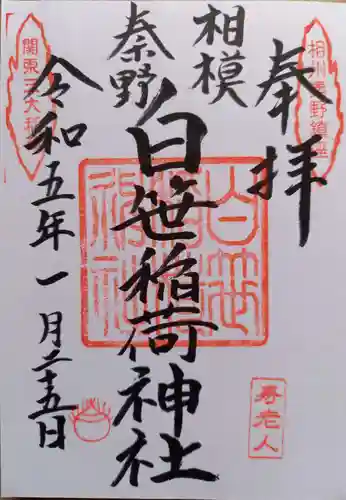 奉拝
相州秦野鎮座
相模
秦野
白笹稲荷神社
関東三大稲荷
令和五年一月二十五日
寿老人